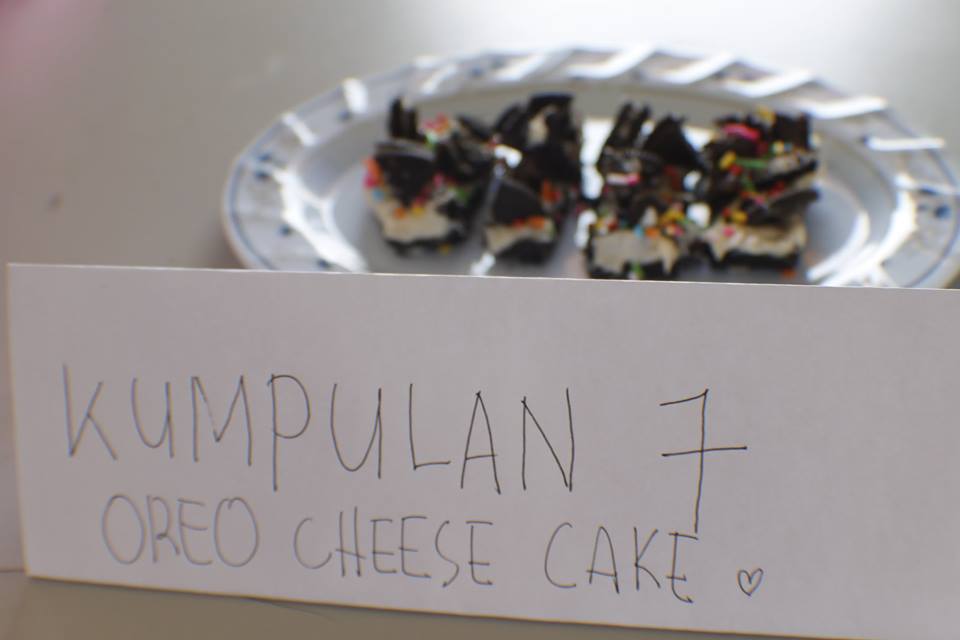 KUMPULAN 7
OREO CHEESE CAKE ♡